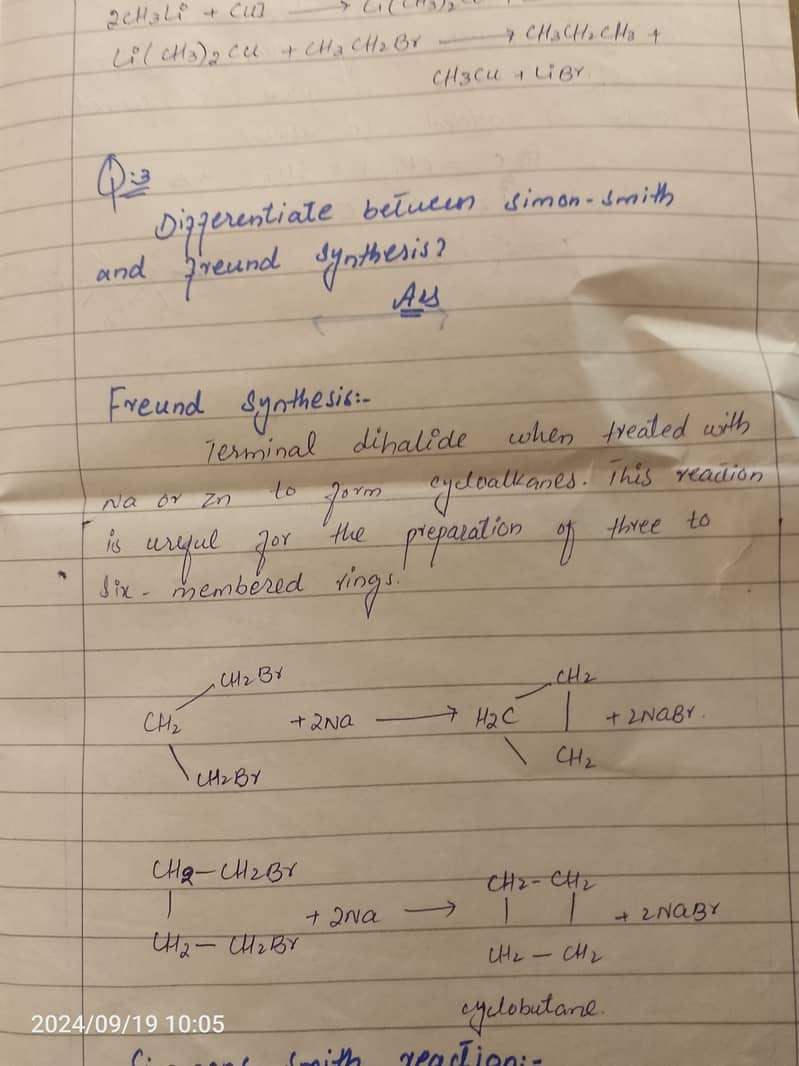 2CH3Li + CuI → Li(CH3)2
Li(CH3)2Cu + CH3CH2Br → CH3CH2CH3 +
CH3Cu + LiBr.
Q:3
Differentiate between simon-smith
and freund synthesis?
Ans
Freund synthesis:-
Terminal dihalide when treated with
Na or Zn to form cycloalkanes. This reaction
is useful for the preparation of three to
six- membered rings.
CH2Br CH2
CH2 +2Na → H2C + 2NaBr.
CH2Br CH2
CH2-CH2Br CH2- CH2
+ 2Na → + 2NaBr
CH2- CH2Br CH2 - CH2
cyclobutane.
2024/09/19 10:05
smith reaction:-